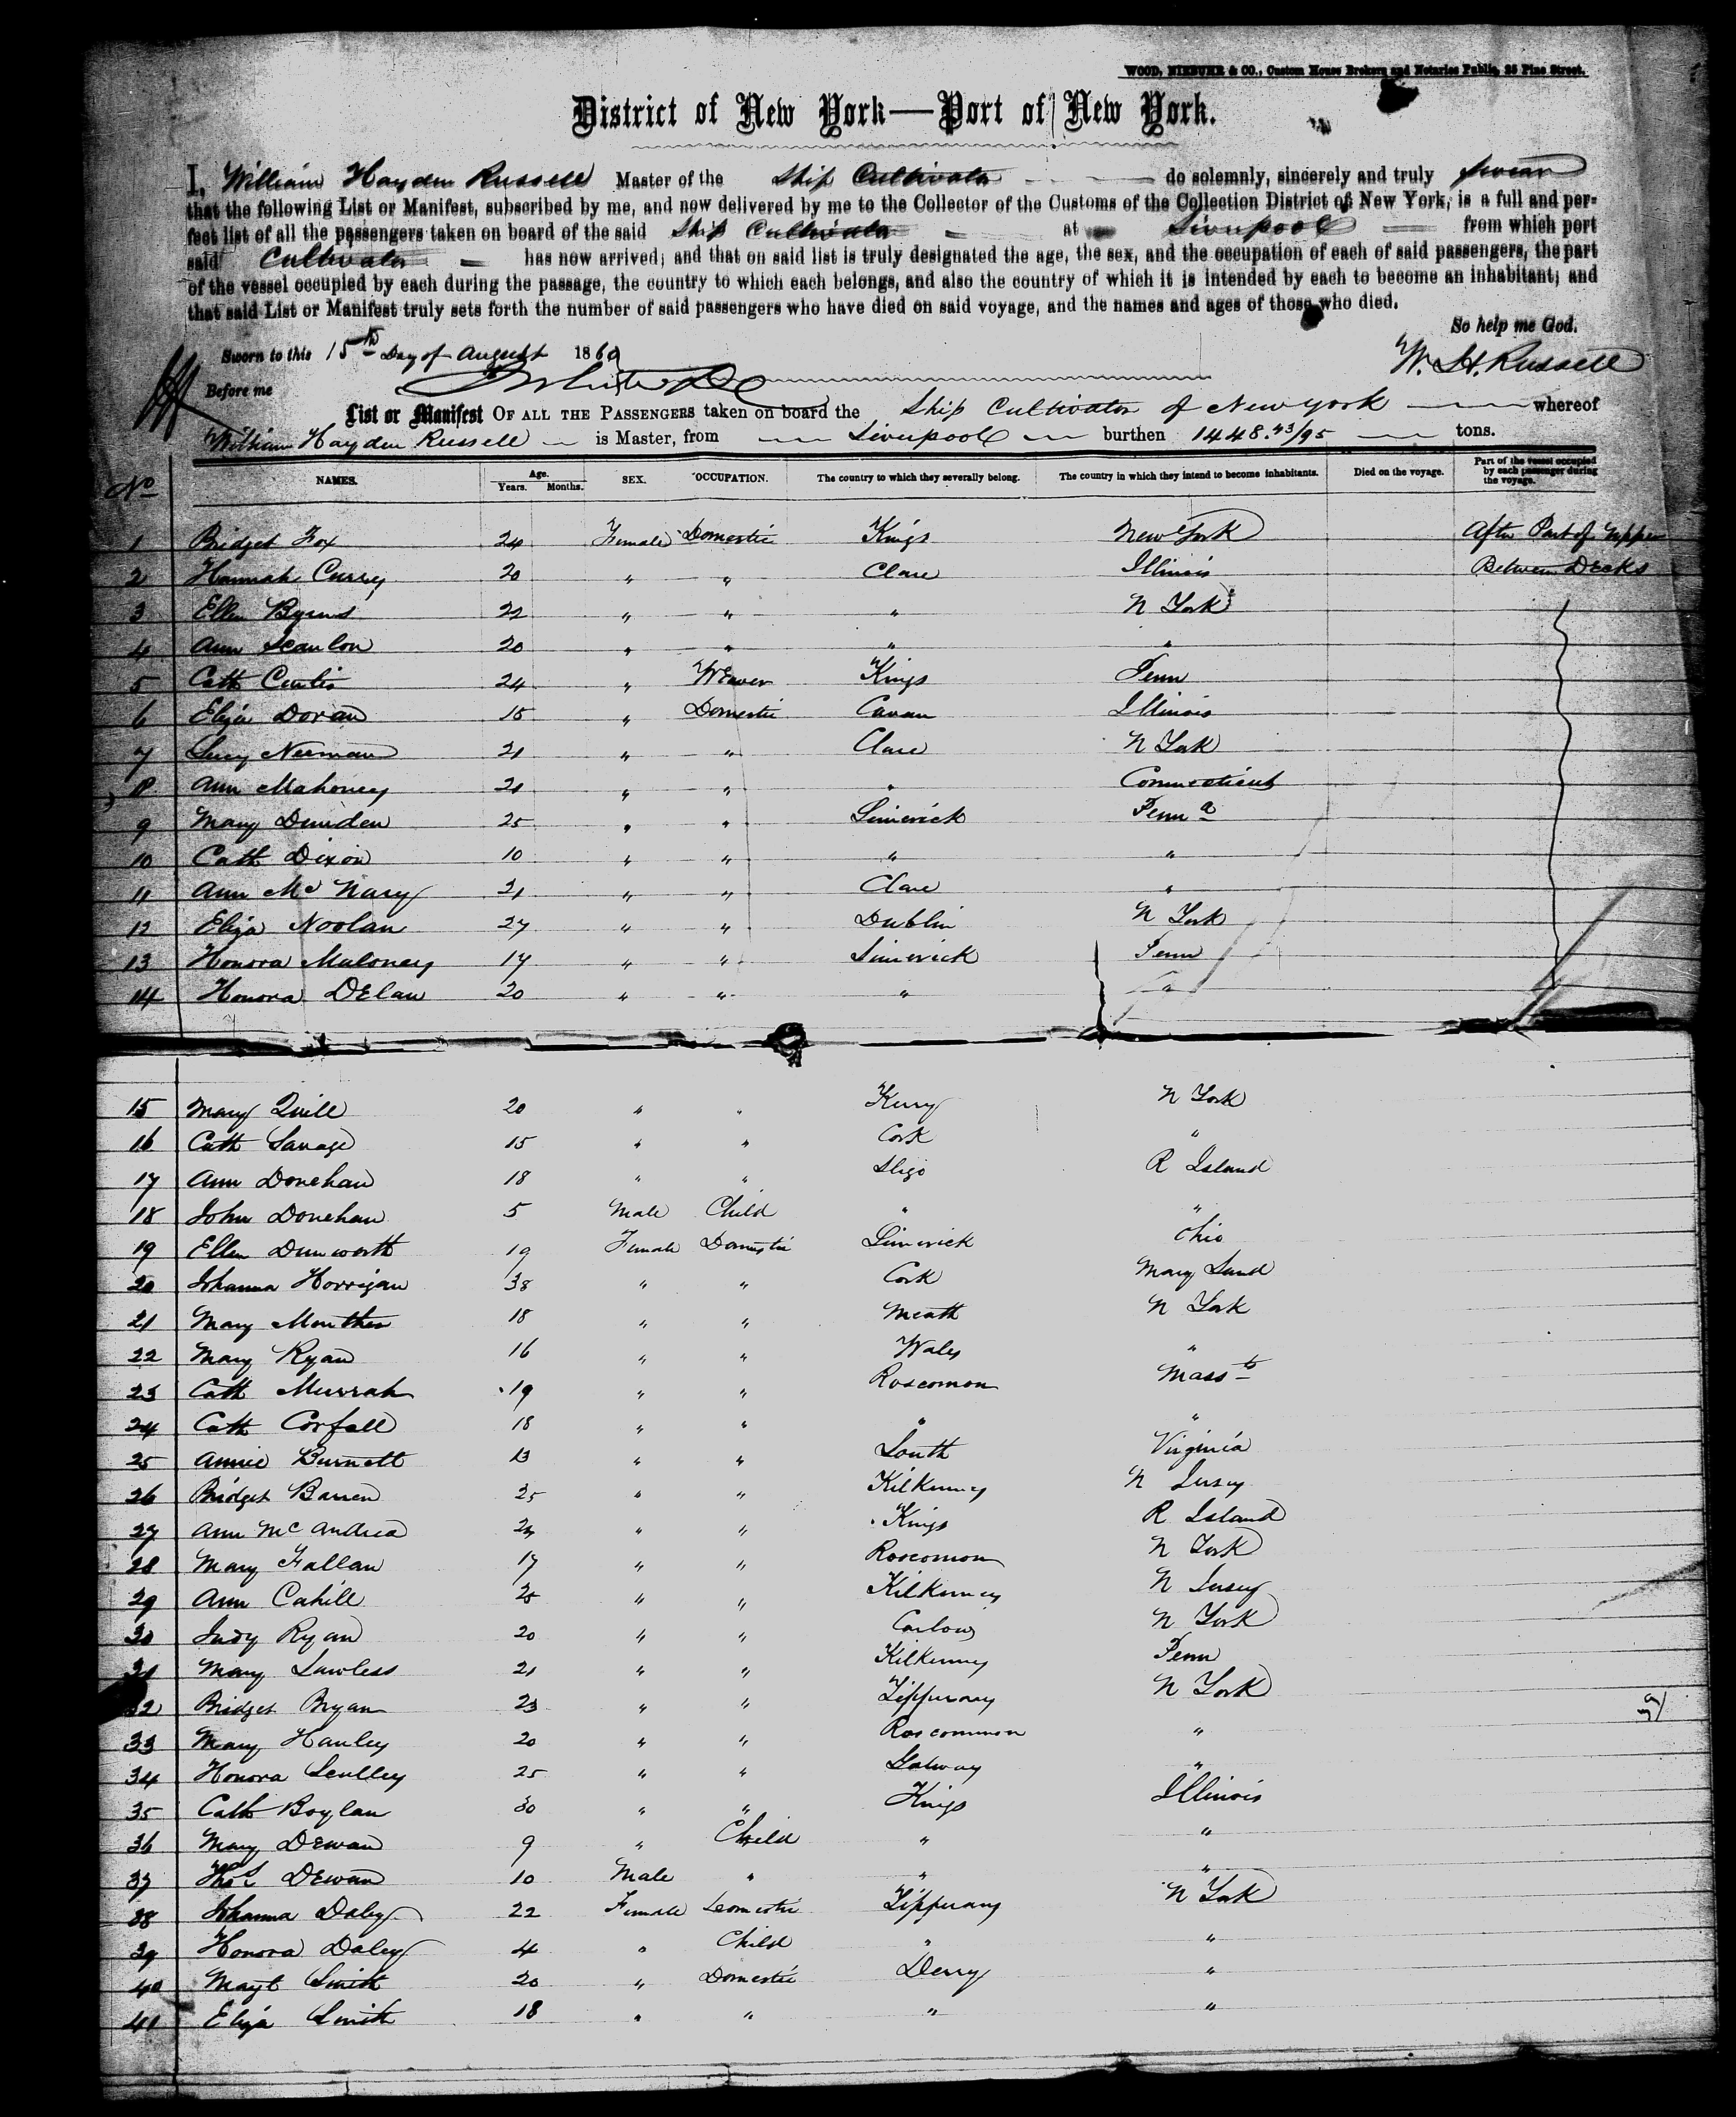 WOOD, NIEBUHR & CO., Custom House Brokers and Notaries Public, 25 Pine Street.
District of New York—Port of New York.
I, William Hayden Russell Master of the Ship Cultivator do solemnly, sincerely and truly swear
that the following List or Manifest, subscribed by me, and now delivered by me to the Collector of the Customs of the Collection District of New York, is a full and per-
fect list of all the passengers taken on board of the said Ship Cultivator at Liverpool from which port
said Cultivator has now arrived; and that on said list is truly designated the age, the sex, and the occupation of each of said passengers, the part
of the vessel occupied by each during the passage, the country to which each belongs, and also the country of which it is intended by each to become an inhabitant; and
that said List or Manifest truly sets forth the number of said passengers who have died on said voyage, and the names and ages of those who died.
So help me God.
Sworn to this 15th Day of August 1860 W. H. Russell
Before me
List or Manifest OF ALL THE PASSENGERS taken on board the Ship Cultivator of New York whereof
William Hayden Russell is Master, from Liverpool burthen 1448.43/95 tons.
No NAMES. Age. Years. Months. SEX. OCCUPATION. The country to which they severally belong. The country in which they intend to become inhabitants. Died on the voyage. Part of the vessel occupied by each passenger during the voyage.
1 Bridget Fox 24 Female Domestic Kings New York After Part of Upper
2 Hannah Curry 20 " " Clare Illinois Between Decks
3 Ellen Byrns 22 " " " N York
4 Ann Scanlon 20 " " " "
5 Cath Curtis 24 " Weaver Kings Penn
6 Eliza Doran 15 " Domestic Cavan Illinois
7 Lucy Neeman 21 " " Clare N York
8 Ann Mahoney 21 " " " Connecticut
9 Mary Dunden 25 " " Limerick Penna
10 Cath Dixon 10 " " " "
11 Ann Mc Nary 31 " " Clare "
12 Eliza Noolan 27 " " Dublin N York
13 Honora Maloney 17 " " Limerick Penn
14 Honora DElan 20 " " " "
15 Mary Quill 20 " " Kerry N York
16 Cath Savage 15 " " Cork "
17 Ann Donehan 18 " " Sligo R Island
18 John Donehan 5 Male Child " "
19 Ellen Dunworth 19 Female Domestic Limerick Ohio
20 Johanna Horrigan 38 " " Cork Mary Land
21 Mary Menther 18 " " Meath N York
22 Mary Ryan 16 " " Wales "
23 Cath Murrah 19 " " Roscomon Massts
24 Cath Corfall 18 " " " "
25 Annie Burnett 13 " " Louth Virginia
26 Bridget Barren 25 " " Kilkenney N Jersey
27 Ann Mc Andrea 24 " " Kings R Island
28 Mary Fallan 17 " " Roscomon N York
29 Ann Cahill 25 " " Kilkenney N Jersey
30 Judy Ryan 20 " " Carlow N York
31 Mary Lawless 21 " " Kilkenney Penn
32 Bridget Bryan 23 " " Tipperary N York
33 Mary Hanley 20 " " Roscommon "
34 Honora Sculley 25 " " Galway "
35 Cath Boylan 30 " " Kings Illinois
36 Mary DEwan 9 " Child " "
37 Thos DEwan 10 Male " " "
38 Johanna Daley 22 Female Domestic Tipperary N York
39 Honora Daley 4 " Child " "
40 Mayt Smith 20 " Domestic Derry "
41 Eliza Smith 18 " " " "